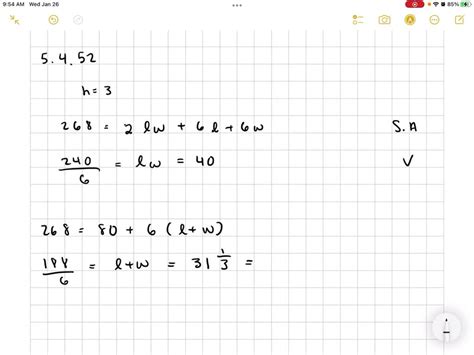 9:54 AM Wed Jan 26
85%
5.4.52
h = 3
268 = 2 lw + 6l + 6w S.A
240/6 = lw = 40 V
268 = 80 + 6 (l+w)
188/6 = l+w = 31 1/3 =